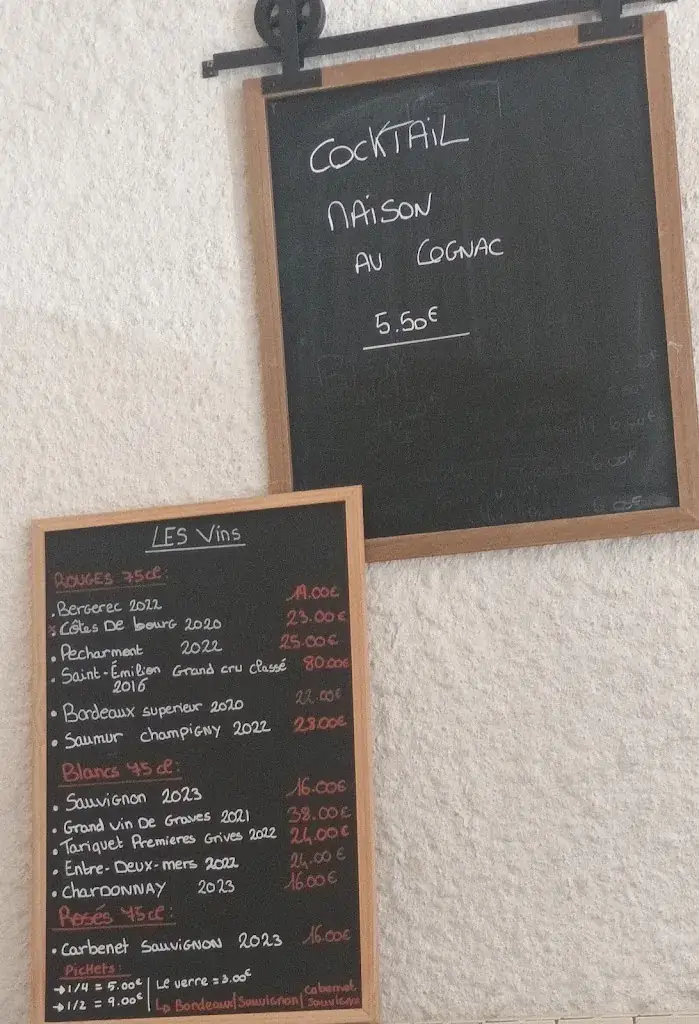 COCKTAIL
MAISON
AU COGNAC
5.50€
LES Vins
ROUGES 75cl:
. Bergerec 2022 19.00€
. Côtes De bourg 2020 23.00€
. Pecharment 2022 25.00€
. Saint-Émilion Grand cru classé 80.00€
2016
• Bordeaux superieur 2020 22.00€
• Saumur champigny 2022 28.00€
Blancs 75cl:
• Sauvignon 2023 16.00€
• Grand vin De Graves 2021 38.00€
• Tariquet Premieres Grives 2022 24.00€
• Entre-Deux-mers 2022 24.00€
• CharDONNAY 2023 16.00€
Rosés 75cl:
• Carbenet Sauvignon 2023 16.00€
Pichets:
→ 1/4 = 5.00€ | Le verre = 3.00€
→ 1/2 = 9.00€ | Bordeaux/Sauvignon/cabernet sauvignon